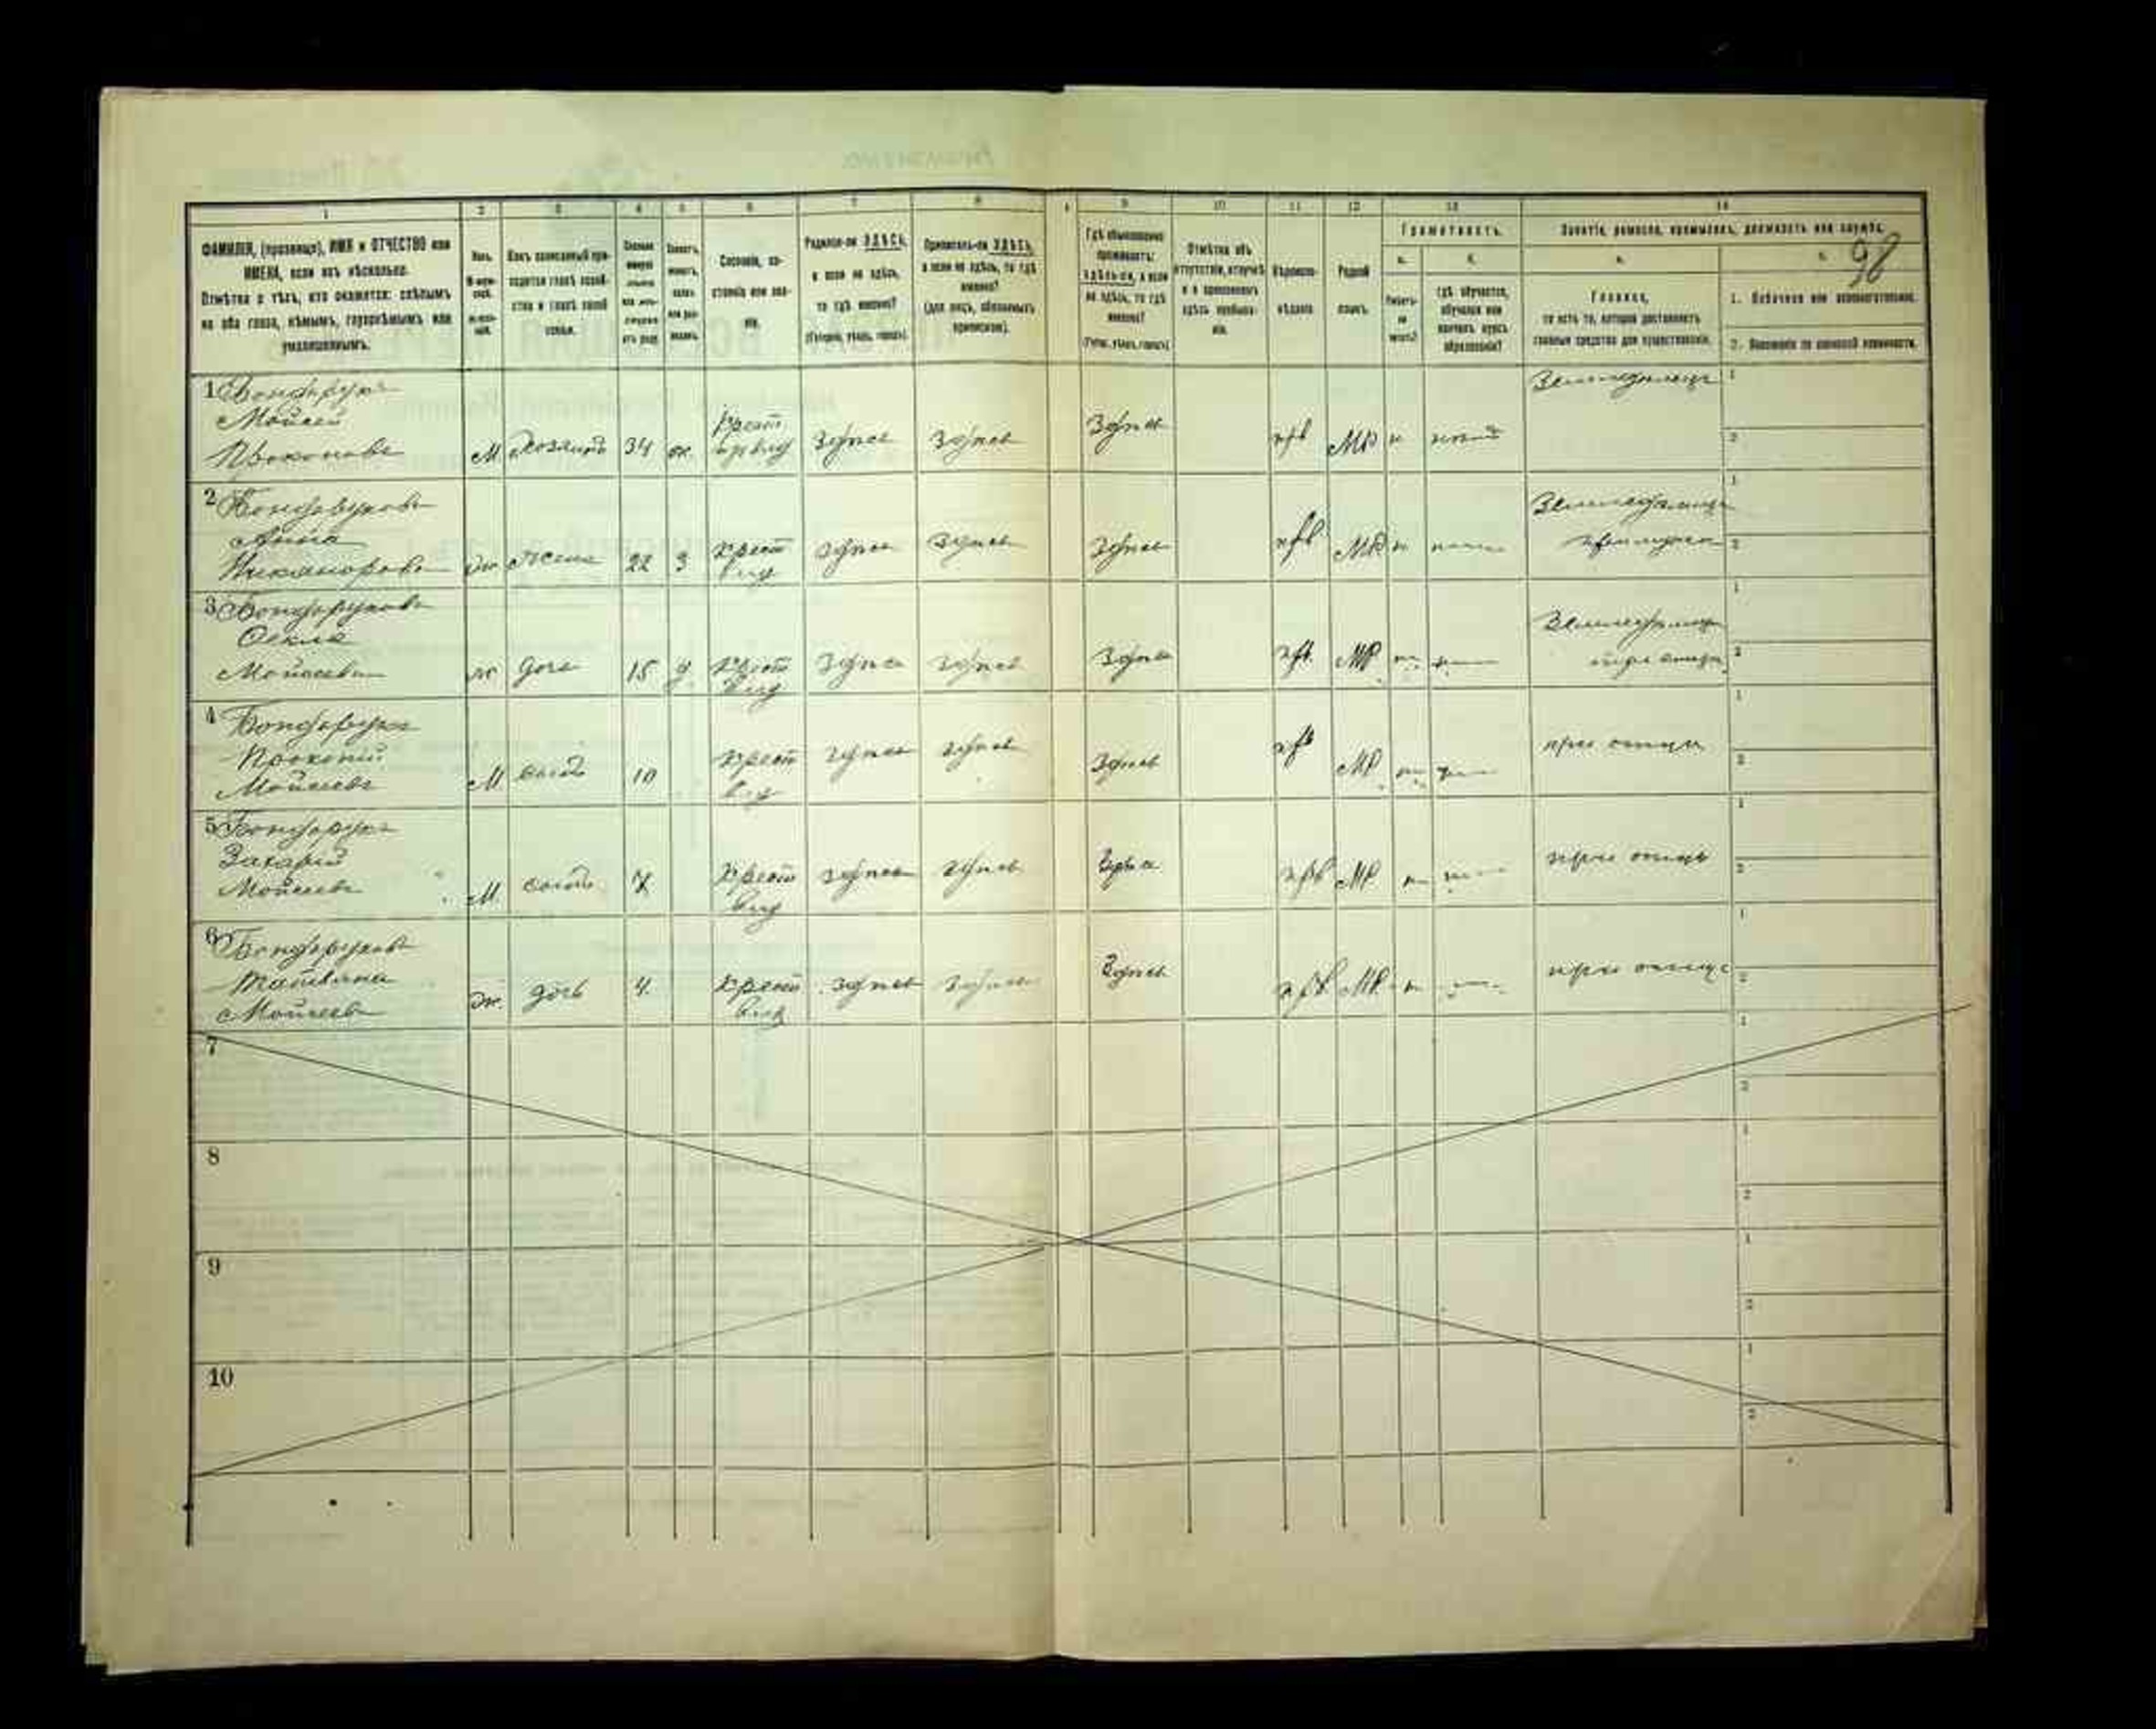 1 2 3 4 5 6 7 8 9 10 11 12 13 14
ФАМИЛІЯ, (прозвище), ИМЯ и ОТЧЕСТВО или
ИМЕНА, если ихъ нѣсколько.
Отмѣтка о тѣхъ, кто окажется: слѣпымъ
на оба глаза, нѣмымъ, глухонѣмымъ или
умалишеннымъ.
Полъ.
Какъ записанный при-
ходится главѣ хозяй-
ства и главѣ своей
семьи.
Сословіе, со-
стояніе или зва-
ніе.
Родился-ли ЗДѢСЬ,
а если не здѣсь,
то гдѣ именно?
(Губернія, уѣздъ, городъ).
Приписанъ-ли ЗДѢСЬ,
а если не здѣсь, то гдѣ
именно?
(для лицъ, обязанныхъ
припискою).
Гдѣ обыкновенно
проживаетъ:
здѣсь-ли, а если
не здѣсь, то гдѣ
именно?
(Губер., уѣздъ, городъ).
Отмѣтка объ
отсутствіи, отлучкѣ
и о временномъ
здѣсь пребыва-
ніи.
Вѣроиспо-
вѣданіе.
Родной
языкъ.
Грамотность.
а. б.
Умѣетъ-
ли
читать?
гдѣ обучается,
обучался или
кончилъ курсъ
образованія?
Занятіе, ремесло, промыселъ, должность или служба.
98
Главное,
то есть то, которое доставляетъ
главныя средства для существованія.
1. Побочное или вспомогательное.
2. Положеніе по воинской повинности.
1 Бондарукъ
Мойсей
Прокоповъ
М Хозяинъ 34 ж. Крест. здѣсь здѣсь здѣсь прв МР н
Земледѣлецъ
2 Бондарукова
Анна
Никанорова
ж Жена 22 З Крест влад здѣсь здѣсь здѣсь прв МР н
Земледѣлица
при мужѣ
3 Бондарукова
Фекла
Мойсеева
ж дочь 15 д Крест влад здѣсь здѣсь здѣсь прв МР н
Земледѣлица
при отцѣ
4 Бондарукъ
Прокопій
Мойсеевъ
М сынъ 10 Крест влад здѣсь здѣсь здѣсь прв МР н
при отцѣ
5 Бондарукъ
Захарій
Мойсеевъ
М сынъ 7 Крест влад здѣсь здѣсь здѣсь прв МР н
при отцѣ
6 Бондарукова
Татіяна
Мойсеева
ж. дочь 4. Крест влад здѣсь здѣсь здѣсь прв МР н
при отцѣ
7
8
9
10